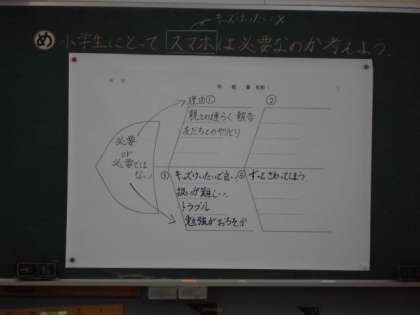 キッズけいたい×
め 小学生にとってスマホは必要なのか考えよう。
年 組 番 名前(
理由①
親との連らく 報告
友だちとのやりとり
②
必要
or
必要では
ない
③ キッズけいたいで良い
扱いが難しい
トラブル
勉強がおろそか
④ ずっとさわってしまう